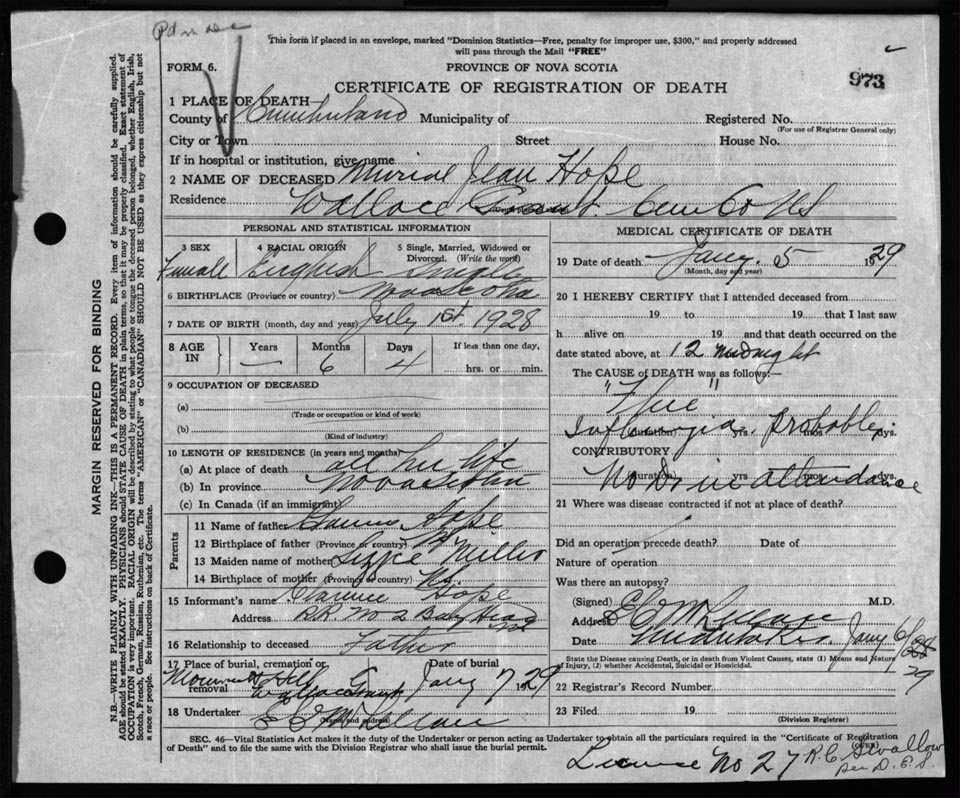 Pd
This form if placed in an envelope, marked "Dominion Statistics—Free, penalty for improper use, $300," and properly addressed
will pass through the Mail "FREE"
FORM 6.
PROVINCE OF NOVA SCOTIA
CERTIFICATE OF REGISTRATION OF DEATH
973
1 PLACE OF DEATH
County of Cumberland Municipality of Registered No.
(For use of Registrar General only)
City or Town Street House No.
If in hospital or institution, give name
2 NAME OF DECEASED Muriel Jean Hope
Residence Wallace Grant. Cum Co NS
PERSONAL AND STATISTICAL INFORMATION
3 SEX 4 RACIAL ORIGIN 5 Single, Married, Widowed or Divorced. (Write the word)
Female English Single
6 BIRTHPLACE (Province or country) Nova Scotia
7 DATE OF BIRTH (month, day and year) July 1st. 1928
8 AGE IN Years Months Days If less than one day,
— 6 4 hrs. or min.
9 OCCUPATION OF DECEASED
(a)
(Trade or occupation or kind of work)
(b)
(Kind of industry)
10 LENGTH OF RESIDENCE (in years and months)
(a) At place of death all her life
(b) In province Nova Scotia
(c) In Canada (if an immigrant)
Parents
11 Name of father Hope
12 Birthplace of father (Province or country) NS
13 Maiden name of mother Lizzie Miller
14 Birthplace of mother (Province or country) NS.
15 Informant's name Clarence Hope
Address R.R. No 2 Bay Head NS
16 Relationship to deceased Father
17 Place of burial, cremation or removal Date of burial
Wallace Grant Jany 7 1929
18 Undertaker
(Name and address)
MEDICAL CERTIFICATE OF DEATH
19 Date of death Jany. 5 1929
(Month, day and year)
20 I HEREBY CERTIFY that I attended deceased from
19 to 19 that I last saw
h alive on 19 and that death occurred on the
date stated above, at 12 midnight
The CAUSE of DEATH was as follows:—
"Flue"
probable
(duration) yrs. mos. dys.
CONTRIBUTORY
No Dr in attendance
(duration) yrs mos. dys.
21 Where was disease contracted if not at place of death?
Did an operation precede death? Date of
Nature of operation
Was there an autopsy?
(Signed) M.D.
Address Undertaker.
Date Jany 6/28 29
State the Disease causing Death, or in death from Violent Causes, state (1) Means and Nature of Injury, (2) whether Accidental, Suicidal or Homicidal.
22 Registrar's Record Number
23 Filed 19
(Division Registrar)
SEC. 46—Vital Statistics Act makes it the duty of the Undertaker or person acting as Undertaker to obtain all the particulars required in the "Certificate of Registration
of Death" and to file the same with the Division Registrar who shall issue the burial permit.
(OVER)
License No 27 R. C. Swallow
per D. E. S.
MARGIN RESERVED FOR BINDING
N.B.—WRITE PLAINLY WITH UNFADING INK—THIS IS A PERMANENT RECORD. Every item of information should be carefully supplied.
AGE should be stated EXACTLY. PHYSICIANS should STATE CAUSE OF DEATH in plain terms, so that it may be properly classified. Exact statement of
OCCUPATION is very important. RACIAL ORIGIN will be described by stating to what people or tongue the deceased person belonged, whether English, Irish,
Scotch, French, German, Russian, Ruthenian, etc. The terms "AMERICAN" or "CANADIAN" SHOULD NOT BE USED as they express citizenship but not
a race or people. See instructions on back of Certificate.